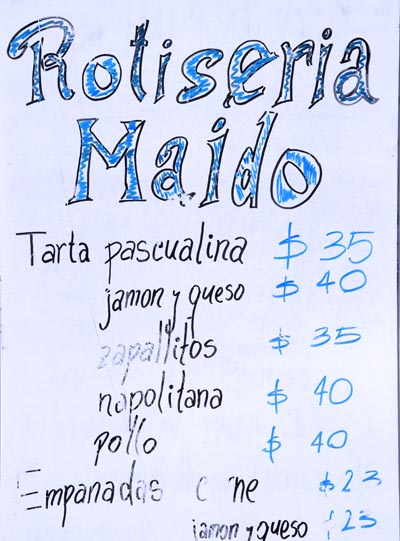 Rotiseria
Maido
Tarta pascualina $ 35
jamon y queso $ 40
zapallitos $ 35
napolitana $ 40
pollo $ 40
Empanadas $ 23
jamon y queso 23